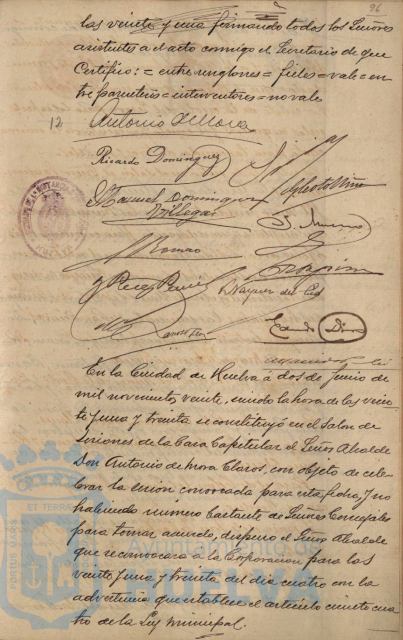 96
las veinte y una firmando todos los Señores
asistentes al acto conmigo el Secretario de que
Certifico: = entre renglones = fieles = vale = en-
tre parentesis = interventores = no vale
12
Antonio de Mora
Ricardo Dominguez
Manuel Dominguez
Villegas
J. Romero
J. Perez
Vazquez del Cid
En la Ciudad de Huelva á dos de Junio de
mil novecientos veinte, siendo la hora de las vein-
te y una y treinta se constituyó en el Salon de
Sesiones de la Casa Capitular el Señor Alcalde
Don Antonio de Mora Claros, con objeto de cele-
brar la sesion convocada para esta fecha, y no
habiendo numero bastante de Señores Concejales
para tomar acuerdo, dispuso el Señor Alcalde
que se convocara a la Corporacion para las
veinte y una y treinta del dia cuatro con la
advertencia que establece el articulo ciento cua-
tro de la Ley municipal.
PORTUS MARIS ET TERRAE
HUELVA